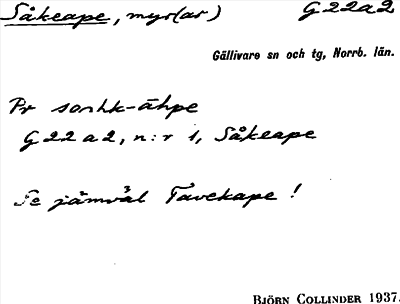 Såkeape, myr(ar) G22a2
Gällivare sn och tg, Norrb. län.
Pr sorhk-ähpe
G22a2, n:r 1, Såkeape
Se jämväl Tavekape!
BJÖRN COLLINDER 1937.